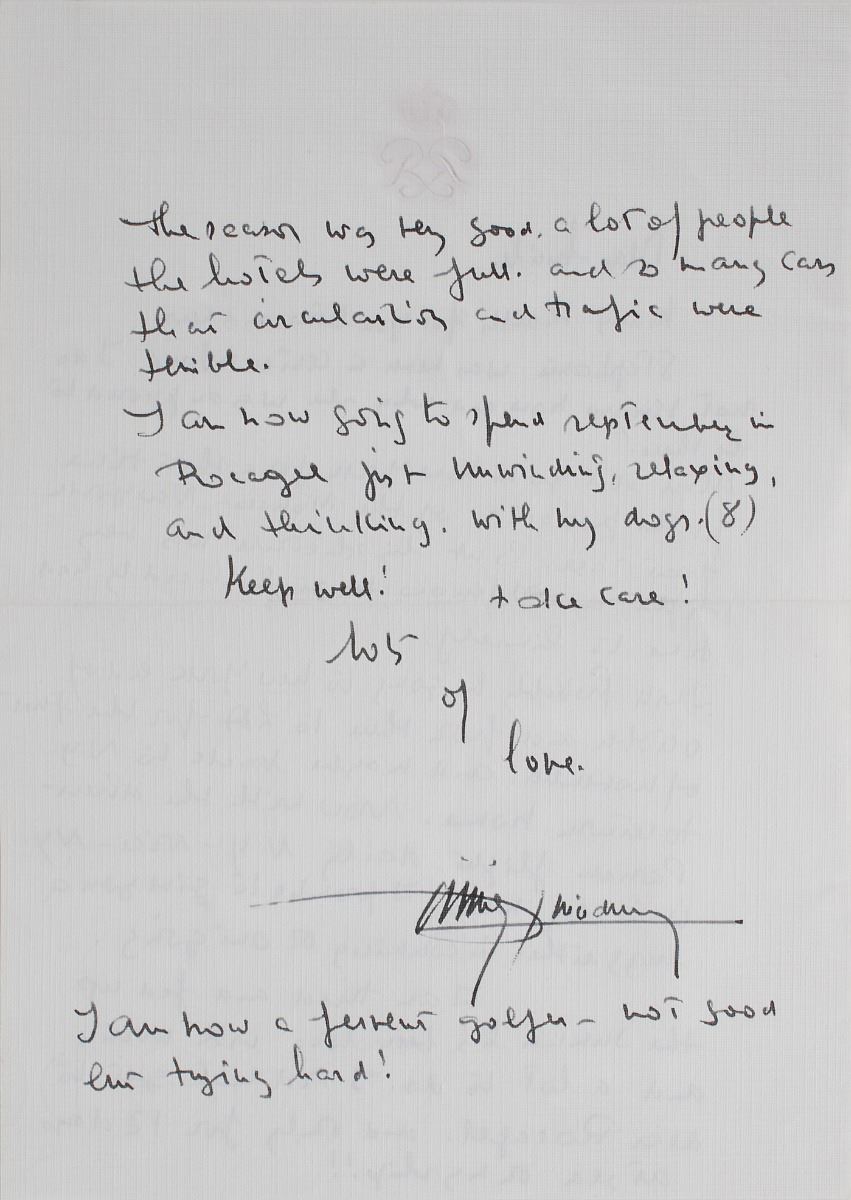 The season was very good. a lot of people
the hotels were full. and so many cars
that circulation and trafic were
terrible.
I am now going to spend september in
Rocagel just unwinding, relaxing,
and thinking. with my dogs. (8)
Keep well! take care!
lots
of
love.
I am now a fervent golfer – not good
but trying hard!